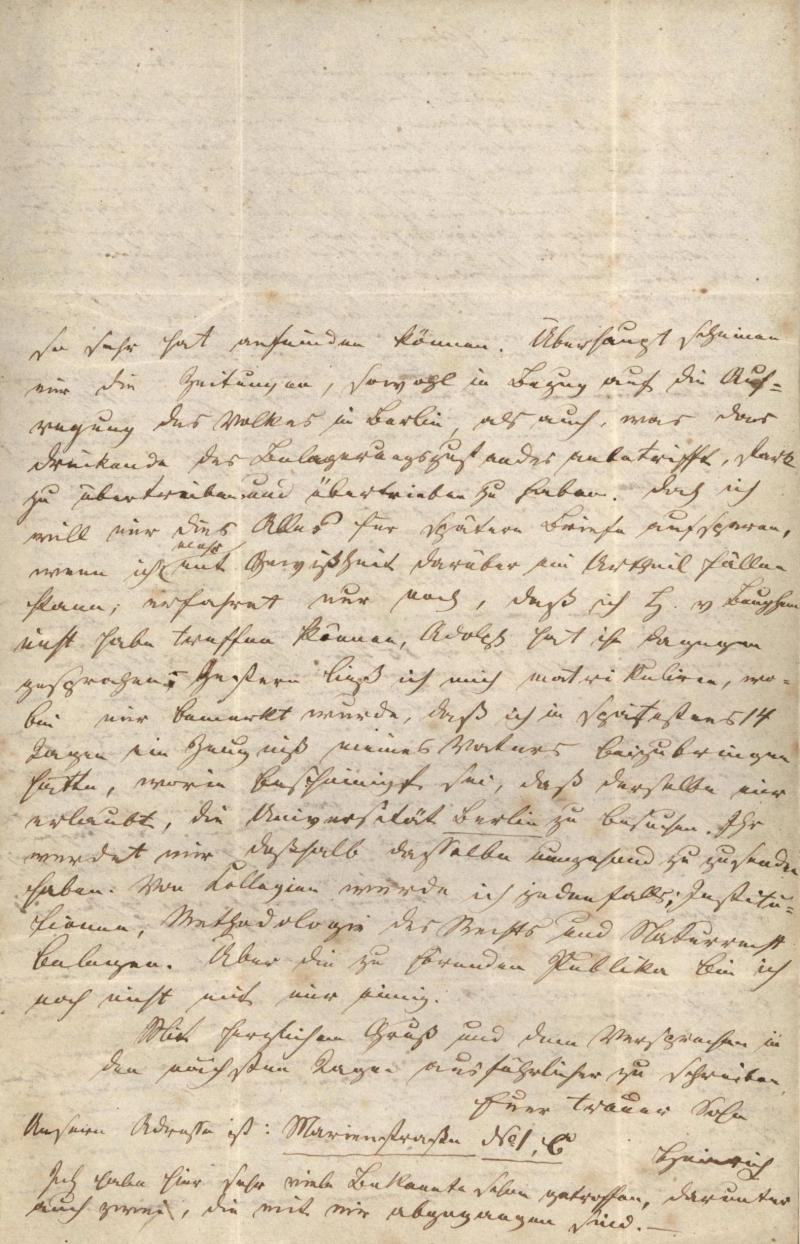 so sehr hat anfeinden können. Überhaupt scheinen
mir die Zeitungen, sowohl in Bezug auf die Auf-
regung des Volkes in Berlin, als auch, was das
drückende des Belagerungszustandes anbetrifft, stark
zu übertreiben und übertrieben zu haben. Doch ich
will mir dies Alles für spätere Briefe aufsparen,
wenn ich mit mehr Gewißheit darüber ein Urtheil fällen
kann; erfahret nur noch, daß ich H. v
nicht habe treffen können, Adolph hat ihn dagegen
gesprochen; Gestern ließ ich mich matrikuliren, wo-
bei mir bemerkt wurde, daß ich in spätestens 14
Tagen ein Zeugniß meines Vaters beizubringen
hätte, worin bescheinigt sei, daß derselbe mir
erlaubt, die Universität Berlin zu besuchen. Ihr
werdet mir deßhalb dasselbe umgehend zu zusenden
haben. Von Collegien werde ich jedenfalls; Institu-
tionen, Methodologie des Rechts und Naturrecht
belegen. Über die zu hörenden Publika bin ich
noch nicht mit mir einig.
Mit herzlichem Gruß und dem Versprechen in
den nächsten Tagen ausführlicher zu schreiben
Euer treuer Sohn
Heinrich
Unsere Adresse ist: Marienstraße No 1,
Ich habe hier sehr viele Bekannte schon getroffen, darunter
auch zwei, die mit mir abgegangen sind.—